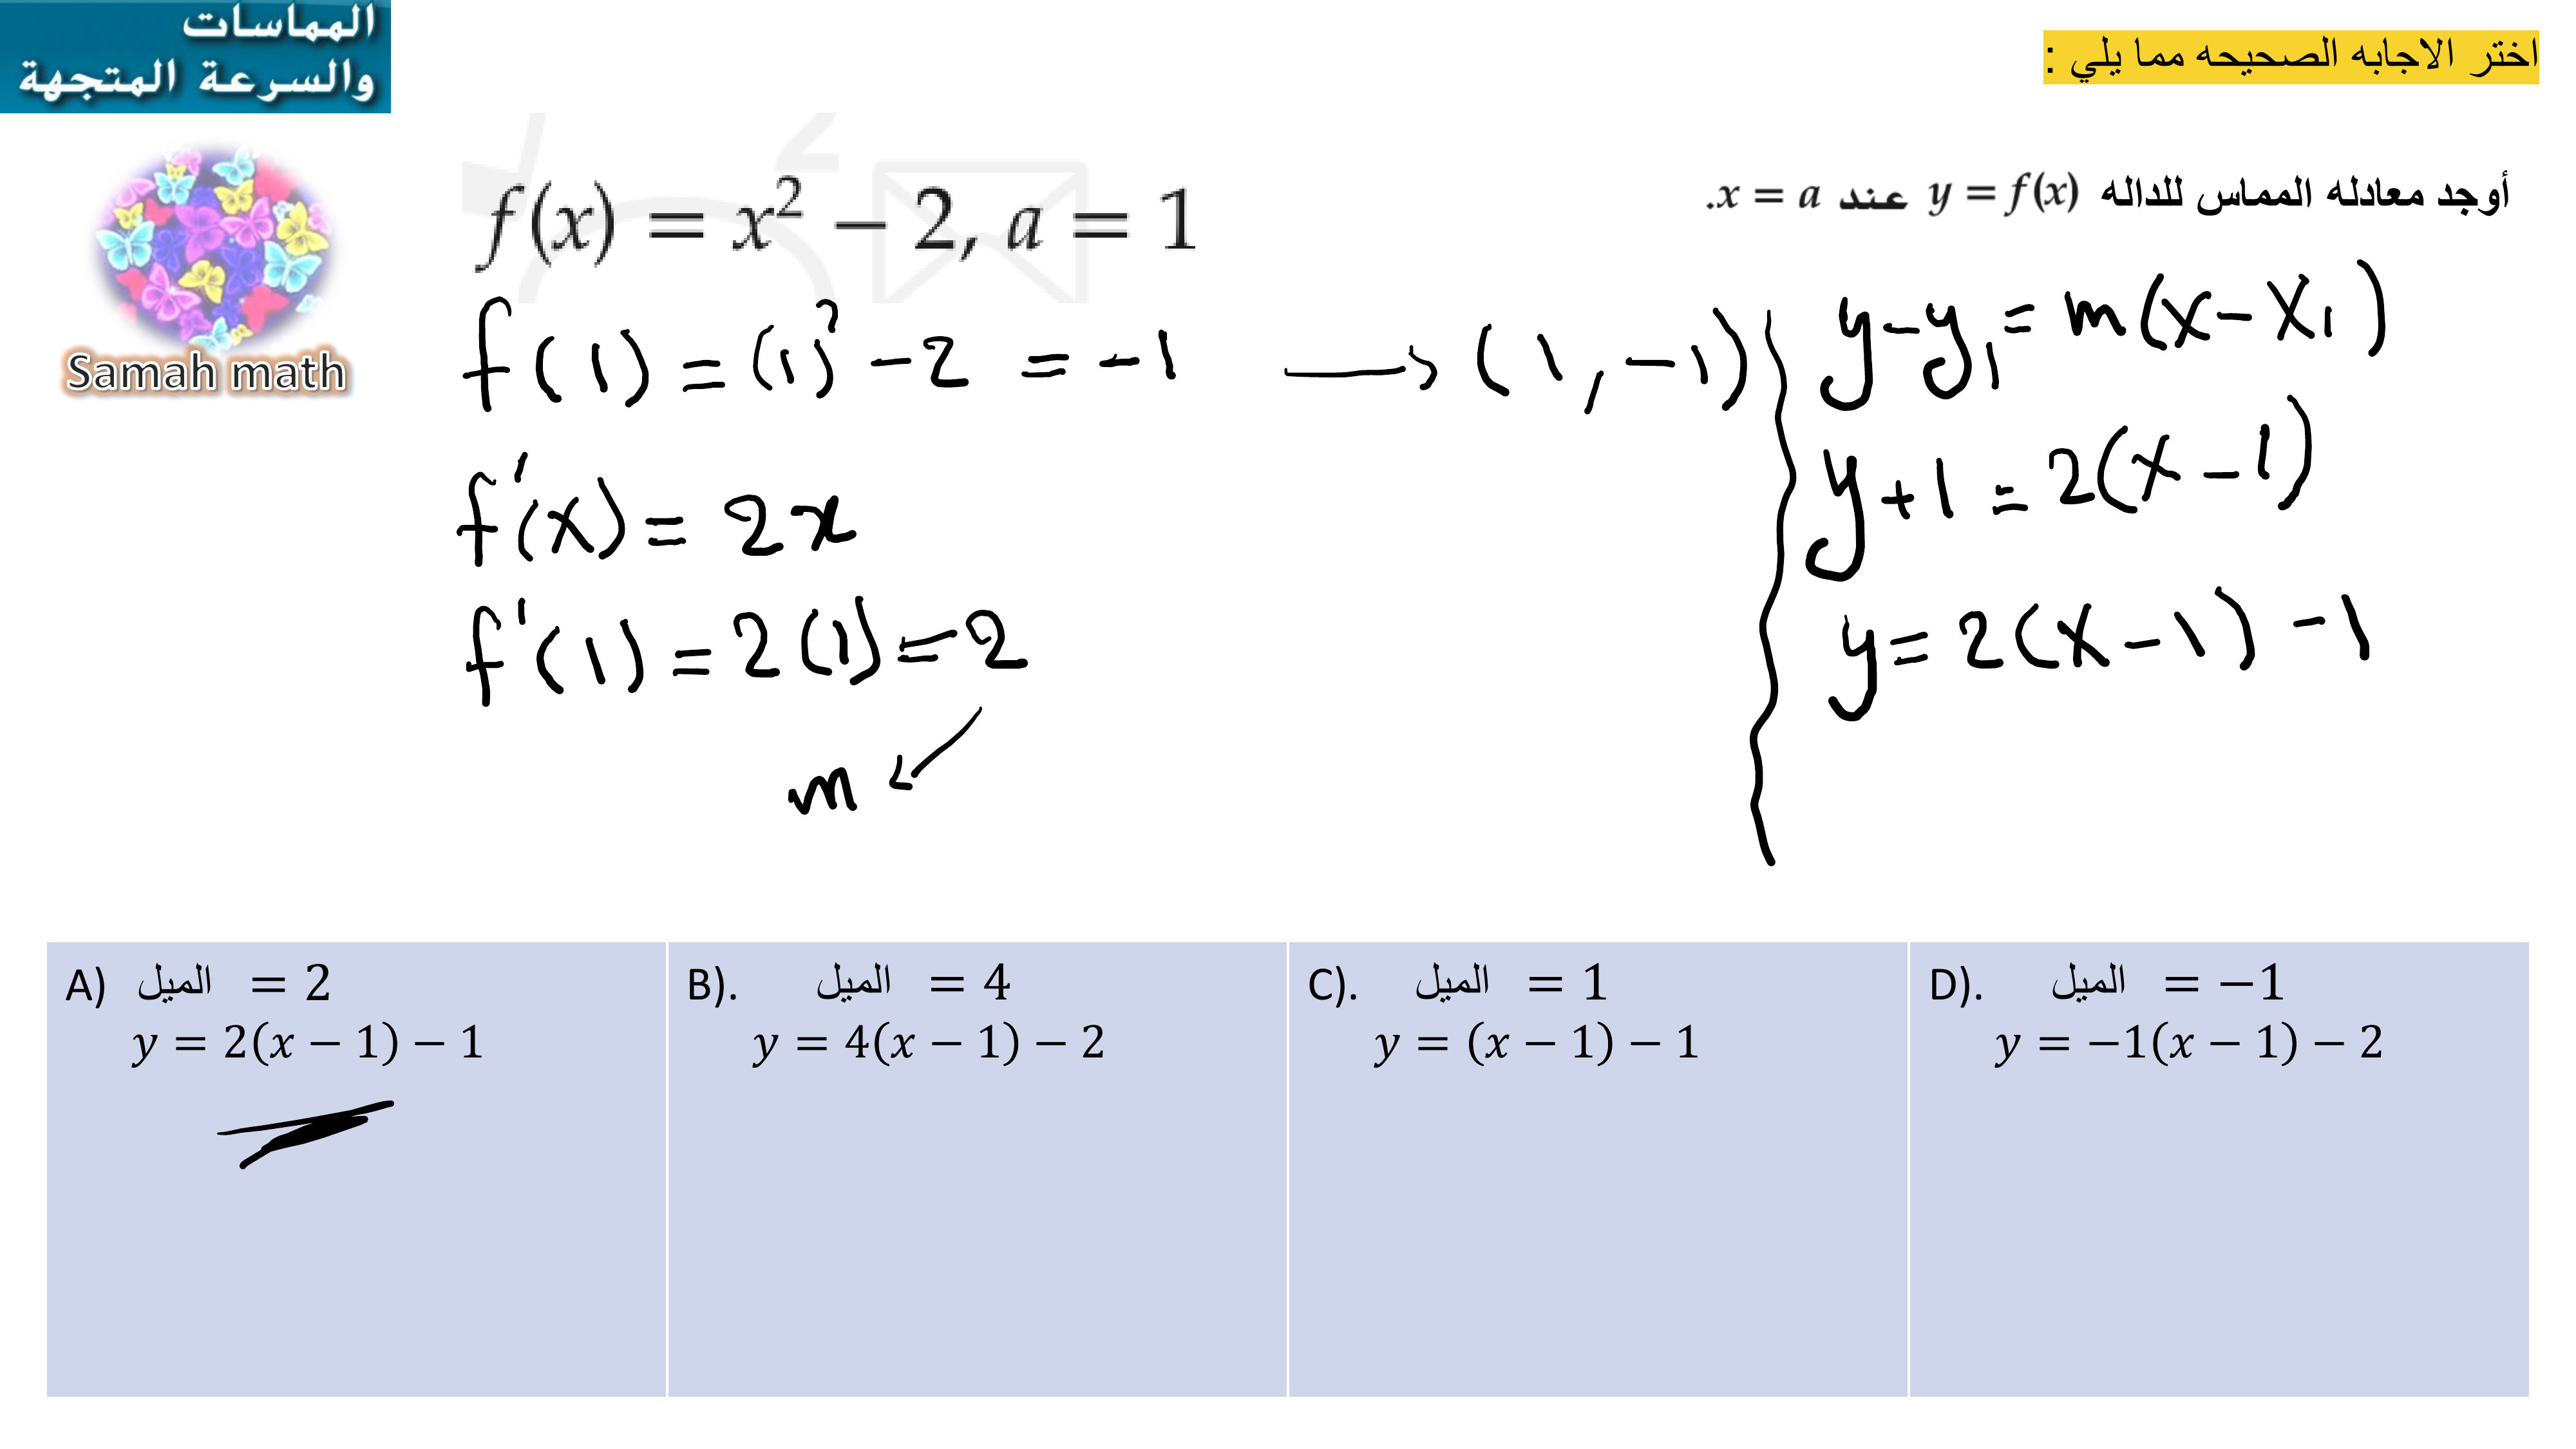 المماسات
والسرعة المتجهة
اختر الاجابه الصحيحه مما يلي :
Samah math
أوجد معادله المماس للداله y = f(x) عند x = a.
f(x) = x² − 2, a = 1
f(1) = (1)² − 2 = −1 → (1, −1)
f'(x) = 2x
f'(1) = 2(1) = 2
m
y − y₁ = m(x − x₁)
y + 1 = 2(x − 1)
y = 2(x − 1) − 1
A) الميل = 2
y = 2(x − 1) − 1
B). الميل = 4
y = 4(x − 1) − 2
C). الميل = 1
y = (x − 1) − 1
D). الميل = −1
y = −1(x − 1) − 2